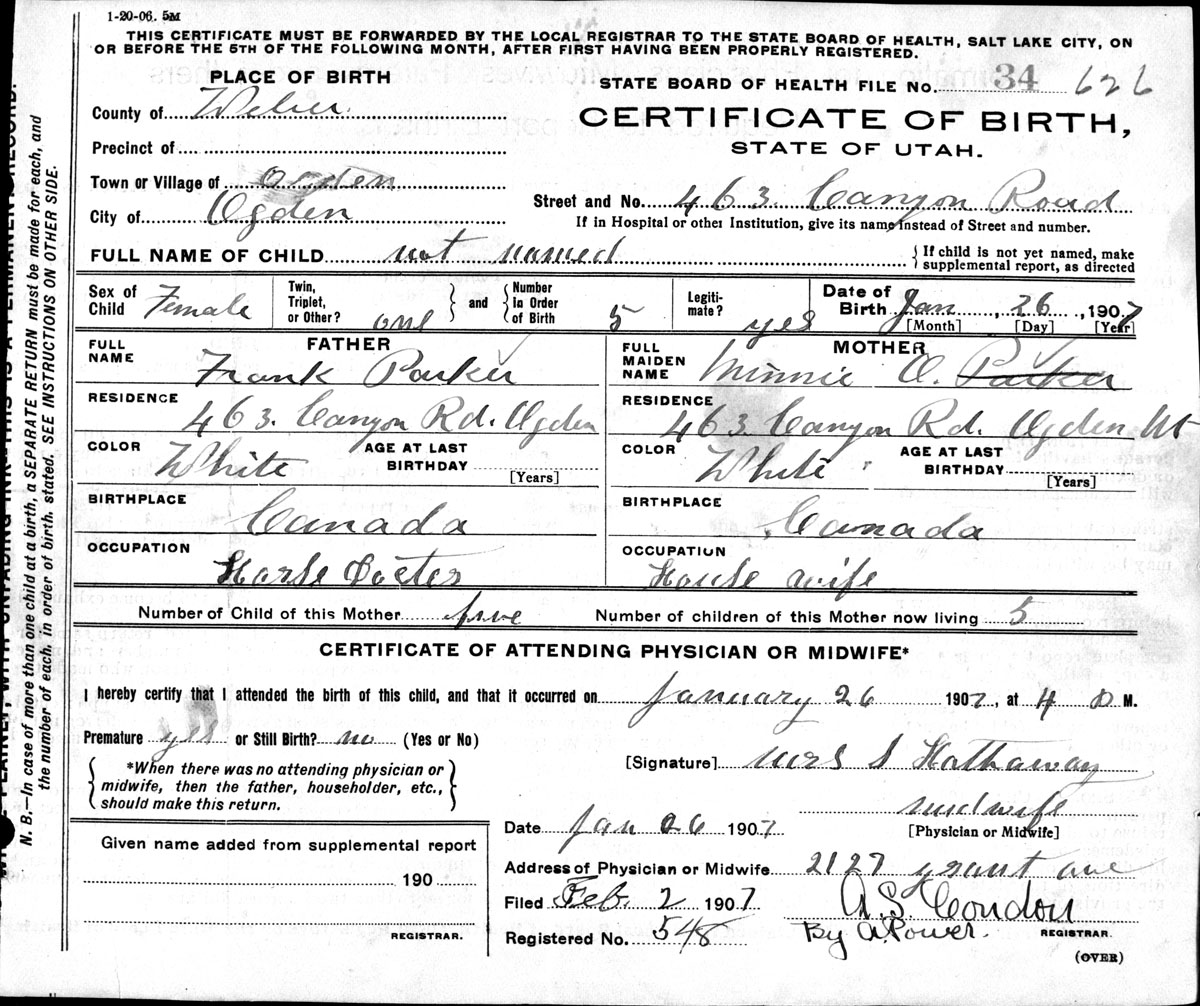 1-20-06. 5M
THIS CERTIFICATE MUST BE FORWARDED BY THE LOCAL REGISTRAR TO THE STATE BOARD OF HEALTH, SALT LAKE CITY, ON
OR BEFORE THE 5TH OF THE FOLLOWING MONTH, AFTER FIRST HAVING BEEN PROPERLY REGISTERED.
PLACE OF BIRTH
STATE BOARD OF HEALTH FILE No. 34 626
County of Weber
CERTIFICATE OF BIRTH,
STATE OF UTAH.
Precinct of
Town or Village of Ogden
City of Ogden
Street and No. 463. Canyon Road
If in Hospital or other Institution, give its name instead of Street and number.
FULL NAME OF CHILD not named
{ If child is not yet named, make
supplemental report, as directed
Sex of Child Female
Twin, Triplet, or Other? one
and
Number in Order of Birth 5
Legitimate? yes
Date of Birth Jan, 26, 1907
[Month] [Day] [Year]
FATHER
FULL NAME Frank Parker
RESIDENCE 463. Canyon Rd. Ogden
COLOR White
AGE AT LAST BIRTHDAY
[Years]
BIRTHPLACE Canada
OCCUPATION Horse Docter
MOTHER
FULL MAIDEN NAME Minnie O. Parker
RESIDENCE 463. Canyon Rd. Ogden Ut
COLOR White
AGE AT LAST BIRTHDAY
[Years]
BIRTHPLACE Canada
OCCUPATION House wife
Number of Child of this Mother five Number of children of this Mother now living 5
CERTIFICATE OF ATTENDING PHYSICIAN OR MIDWIFE*
I hereby certify that I attended the birth of this child, and that it occurred on January 26 1907, at 4 M.
Premature yes or Still Birth? no (Yes or No)
{ *When there was no attending physician or
midwife, then the father, householder, etc.,
should make this return. }
[Signature] Mrs S Hathaway
midwife
[Physician or Midwife]
Date Jan 26 1907
Address of Physician or Midwife 2127 grant ave
Filed Feb 2 1907
A. S. Condon
By A. Power. REGISTRAR.
Registered No. 548
(OVER)
Given name added from supplemental report
190
REGISTRAR.
PLAINLY, WITH UNFADING INK—THIS IS A PERMANENT RECORD.
N. B.—In case of more than one child at a birth, a SEPARATE RETURN must be made for each, and
the number of each, in order of birth, stated. SEE INSTRUCTIONS ON OTHER SIDE.